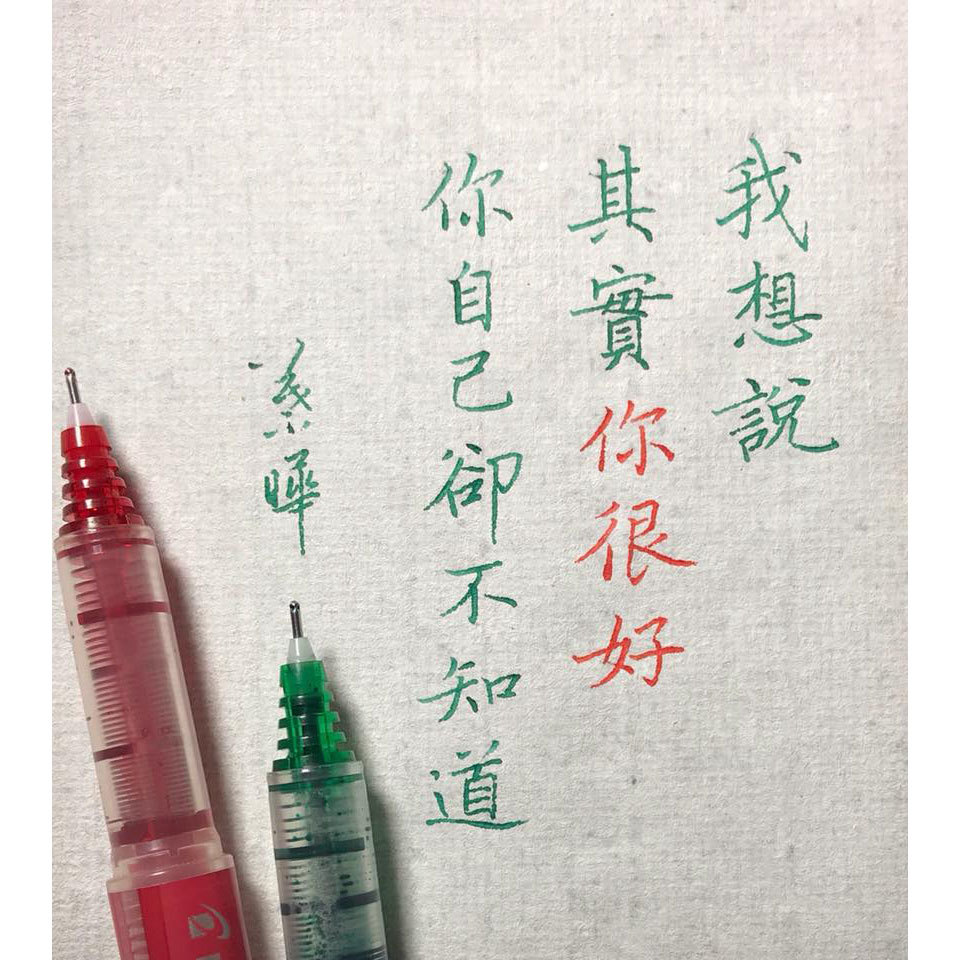 我想說
其實你很好
你自己卻不知道
葉曄